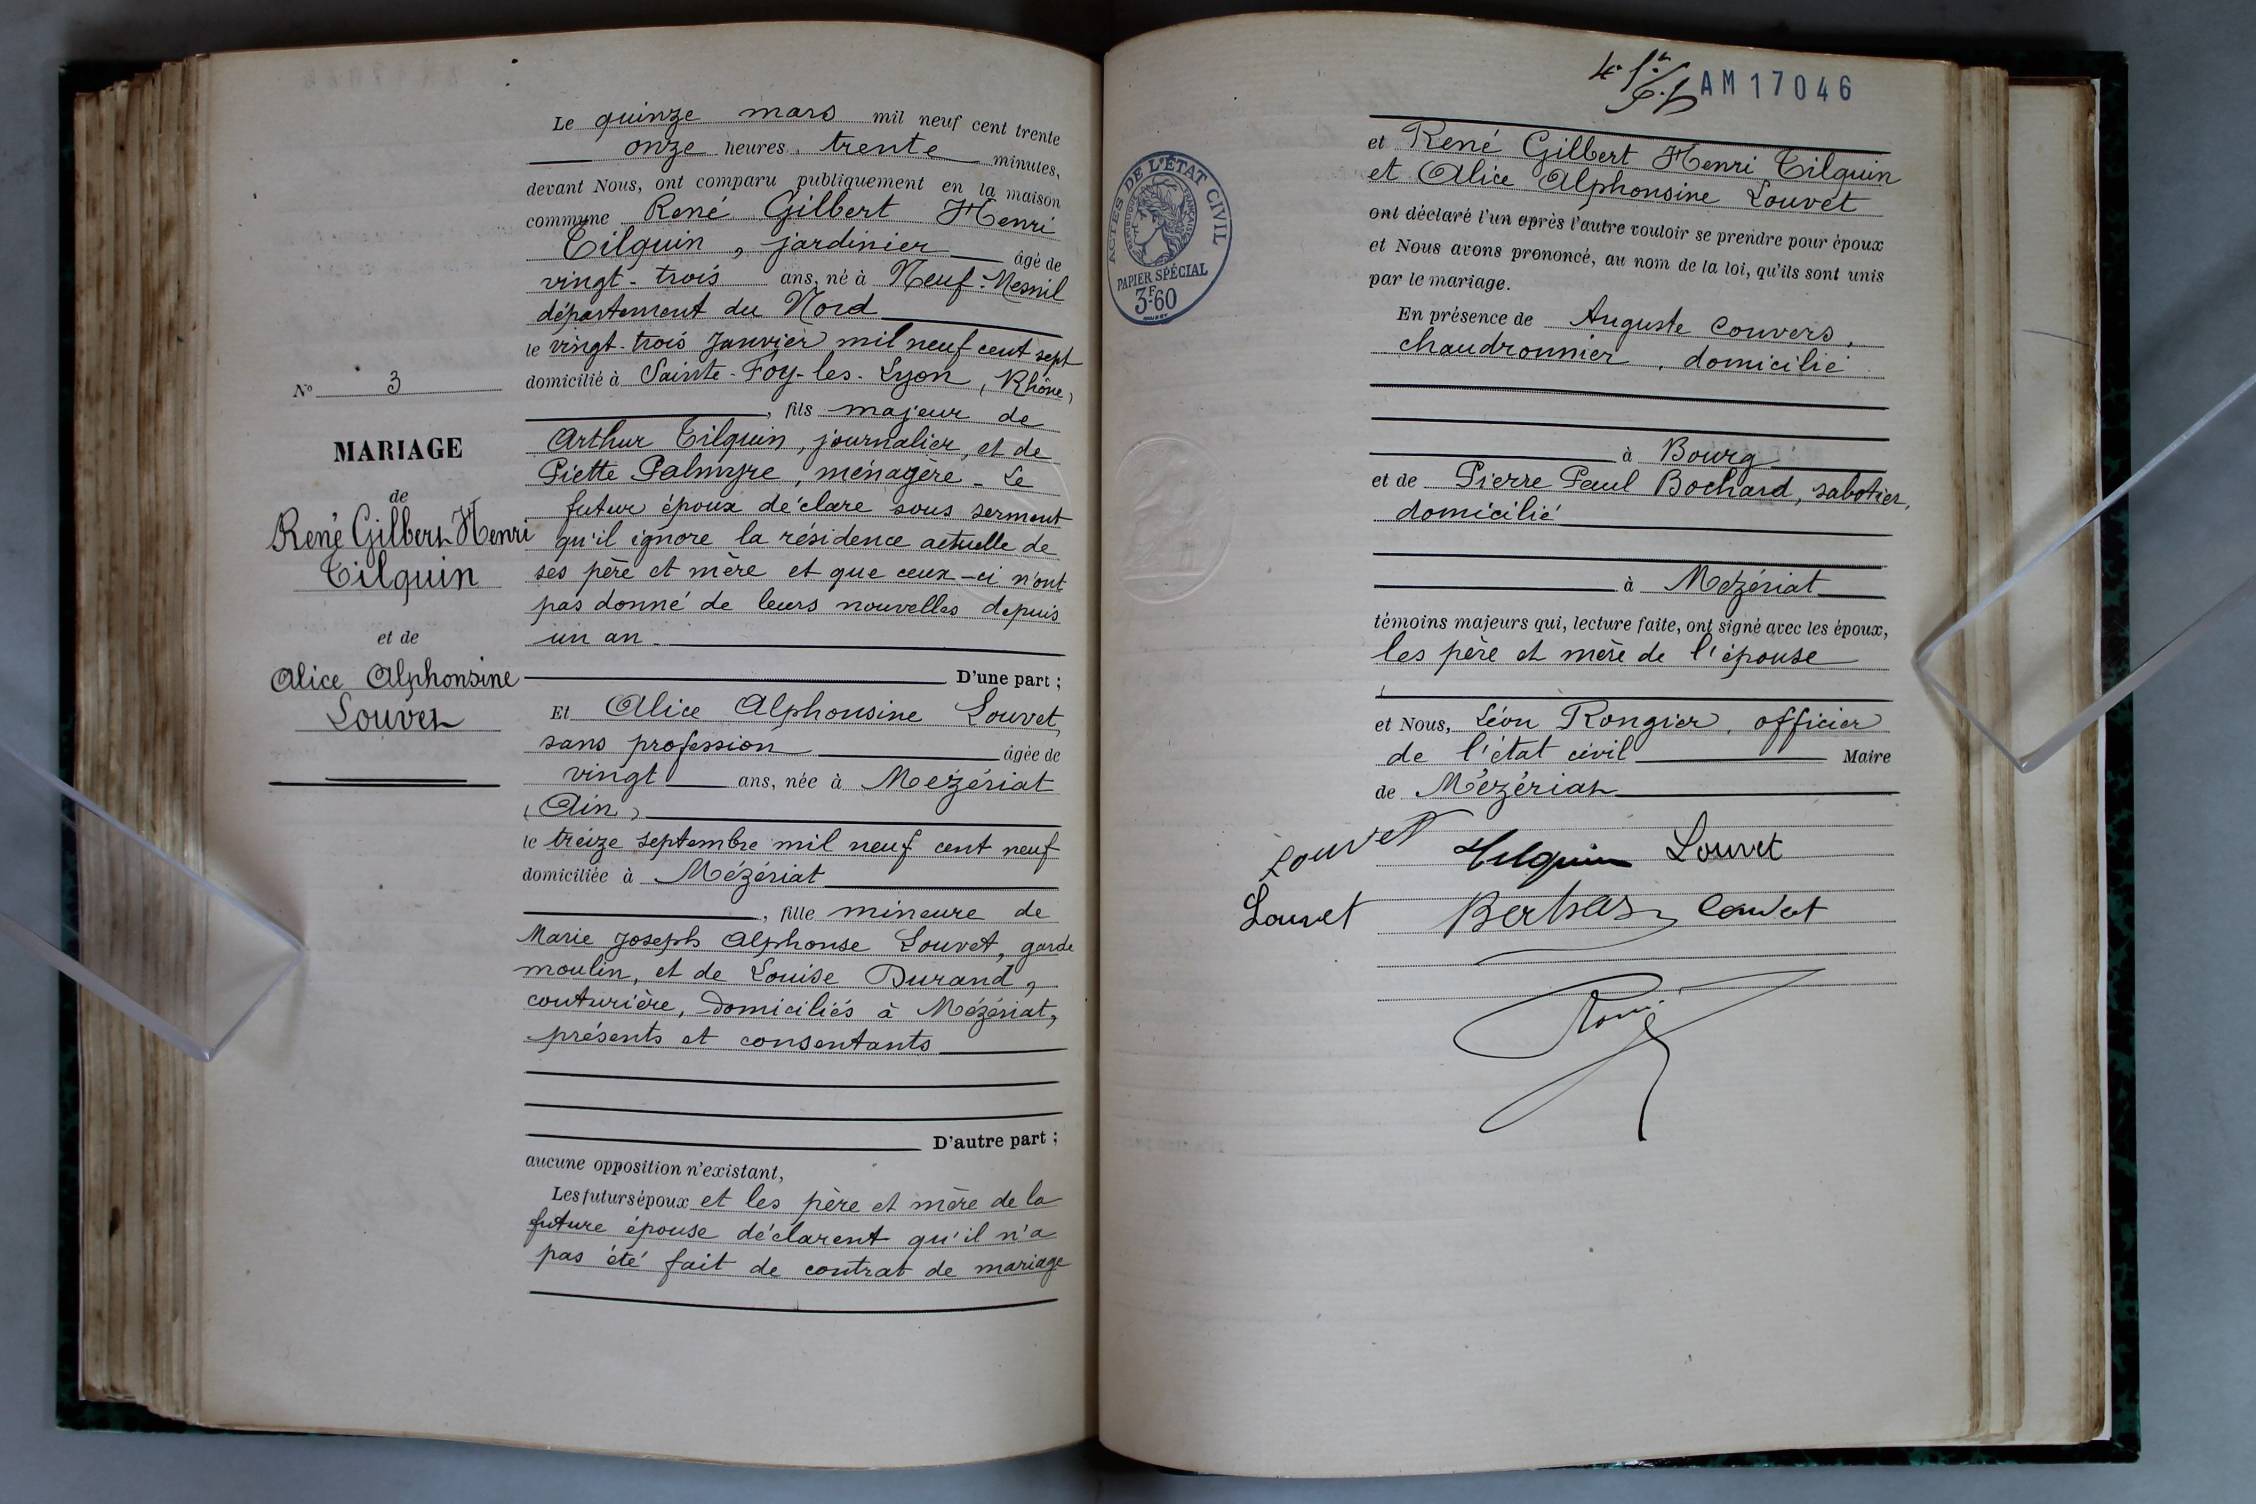 Le quinze mars mil neuf cent trente
onze heures trente minutes,
devant Nous, ont comparu publiquement en la maison
commune René Gilbert Henri
Tilquin, jardinier âgé de
vingt-trois ans, né à Neuf-Mesnil
département du Nord
le vingt-trois Janvier mil neuf cent sept
domicilié à Sainte-Foy-les-Lyon (Rhône)
, fils majeur de
Arthur Tilquin, journalier, et de
Piette Palmyre, ménagère - Le
futur époux déclare sous serment
qu'il ignore la résidence actuelle de
ses père et mère et que ceux-ci n'ont
pas donné de leurs nouvelles depuis
un an
D'une part ;
Et Alice Alphonsine Louvet,
sans profession âgée de
vingt ans, née à Mézériat
(Ain)
le treize septembre mil neuf cent neuf
domiciliée à Mézériat
, fille mineure de
Marie Joseph Alphonse Louvet, garde
moulin, et de Louise Durand,
couturière, domiciliés à Mézériat,
présents et consentants
D'autre part ;
aucune opposition n'existant,
Les futurs époux et les père et mère de la
future épouse déclarent qu'il n'a
pas été fait de contrat de mariage
N° 3
MARIAGE
de
René Gilbert Henri
Tilquin
et de
Alice Alphonsine
Louvet
AM17046
ACTES DE L'ÉTAT CIVIL
RÉPUBLIQUE FRANÇAISE
PAPIER SPÉCIAL
3F60
et René Gilbert Henri Tilquin
et Alice Alphonsine Louvet
ont déclaré l'un après l'autre vouloir se prendre pour époux
et Nous avons prononcé, au nom de la loi, qu'ils sont unis
par le mariage.
En présence de Auguste Couvers,
chaudronnier, domicilié
à Bourg
et de Pierre Paul Bochard, sabotier,
domicilié
à Mézériat
témoins majeurs qui, lecture faite, ont signé avec les époux,
les père et mère de l'épouse
et Nous, Léon Rongier, officier
de l'état civil Maire
de Mézériat
Louvet Tilquin Louvet
Louvet